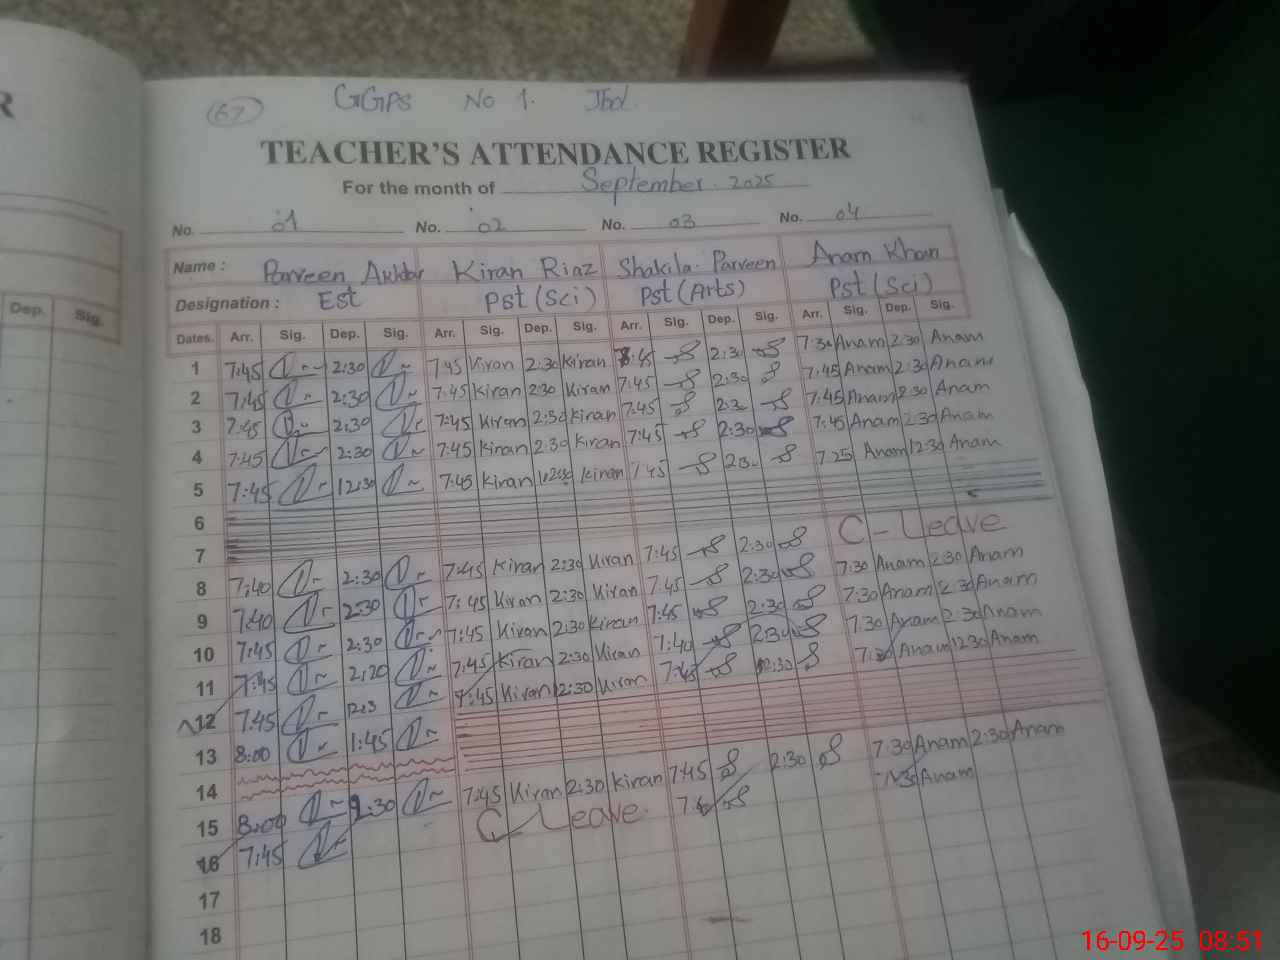 R
67 GGPS No 1. Jbd.
TEACHER'S ATTENDANCE REGISTER
For the month of September 2025
No. 01 No. 02 No. 03 No. 04
Name: Parveen Akhtar Kiran Riaz Shakila Parveen Anam Khan
Designation: Est Pst (Sci) Pst (Arts) Pst (Sci)
Dep. Sig.
Dates. Arr. Sig. Dep. Sig. Arr. Sig. Dep. Sig. Arr. Sig. Dep. Sig. Arr. Sig. Dep. Sig.
1 7:45 2:30 7:45 Kiran 2:30 Kiran 8:45 2:30 7:30 Anam 2:30 Anam
2 7:45 2:30 7:45 Kiran 2:30 Kiran 7:45 2:30 7:45 Anam 2:30 Anam
3 7:45 2:30 7:45 Kiran 2:30 Kiran 7:45 2:30 7:45 Anam 2:30 Anam
4 7:45 2:30 7:45 Kiran 2:30 Kiran 7:45 2:30 7:45 Anam 2:30 Anam
5 7:45 12:30 7:45 Kiran Kiran 7:45 7:25 Anam 12:30 Anam
6
7
8 7:40 2:30 7:45 Kiran 2:30 Kiran 7:45 2:30 C - Leave
9 7:40 2:30 7:45 Kiran 2:30 Kiran 7:45 2:30 7:30 Anam 2:30 Anam
10 7:45 2:30 7:45 Kiran 2:30 Kiran 7:45 2:30 7:30 Anam 2:30 Anam
11 7:45 2:20 7:45 Kiran 2:30 Kiran 7:40 2:30 7:30 Anam 2:30 Anam
12 7:45 12:3 7:45 Kiran 12:30 Kiran 7:45 12:30 Anam 12:30 Anam
13 8:00 1:45
14
15 8:00 2:30 7:45 Kiran 2:30 Kiran 7:45 2:30 7:30 Anam 2:30 Anam
16 7:45 C - Leave Anam
17
18
16-09-25 08:51